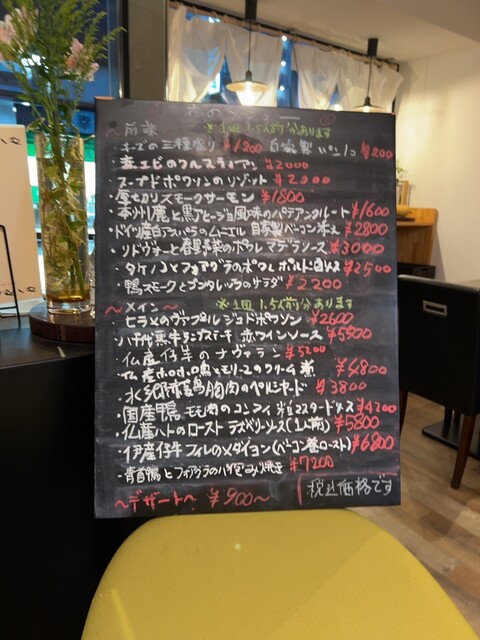 ～前菜
※1皿1.5人前分あります
・チーズの三種盛り ¥1200 自家製パン1コ ¥200
・スープドポワソンのリゾット ¥2000
・厚切りスモークサーモン ¥1800
・本州鹿と黒アヒージョ風味のパテアンクルート ¥1600
・ドイツ産白アスパラのムニエル 自家製ベーコン添え ¥2800
・リドヴォーと春野菜のポワレ マデラソース ¥3000
・タケノコとフォアグラのポワレ ポルト酒ソース ¥2500
・鴨スモークと のサラダ ¥2200
～メイン～ ※1皿1.5人前分あります
・ヒラメのヴァプール ジュドポワソン ¥2600
牛 ステーキ 赤ワインソース ¥5500
・仏産仔羊のナヴァラン ¥5200
・仏産ホロホロ鳥とモリーユのクリーム煮 ¥4800
・水郷赤鶏胸肉の ¥3800
・国産鴨モモ肉のコンフィ 粒マスタードソース ¥4200
・仏産ハトのロースト ラズベリーソース(1人前) ¥5800
・伊産仔牛フィレのメダイヨン(ベーコン巻ロースト) ¥6800
・青首鴨とフォアグラのパイ包み焼き ¥7200
～デザート～ ¥900～
税込価格です